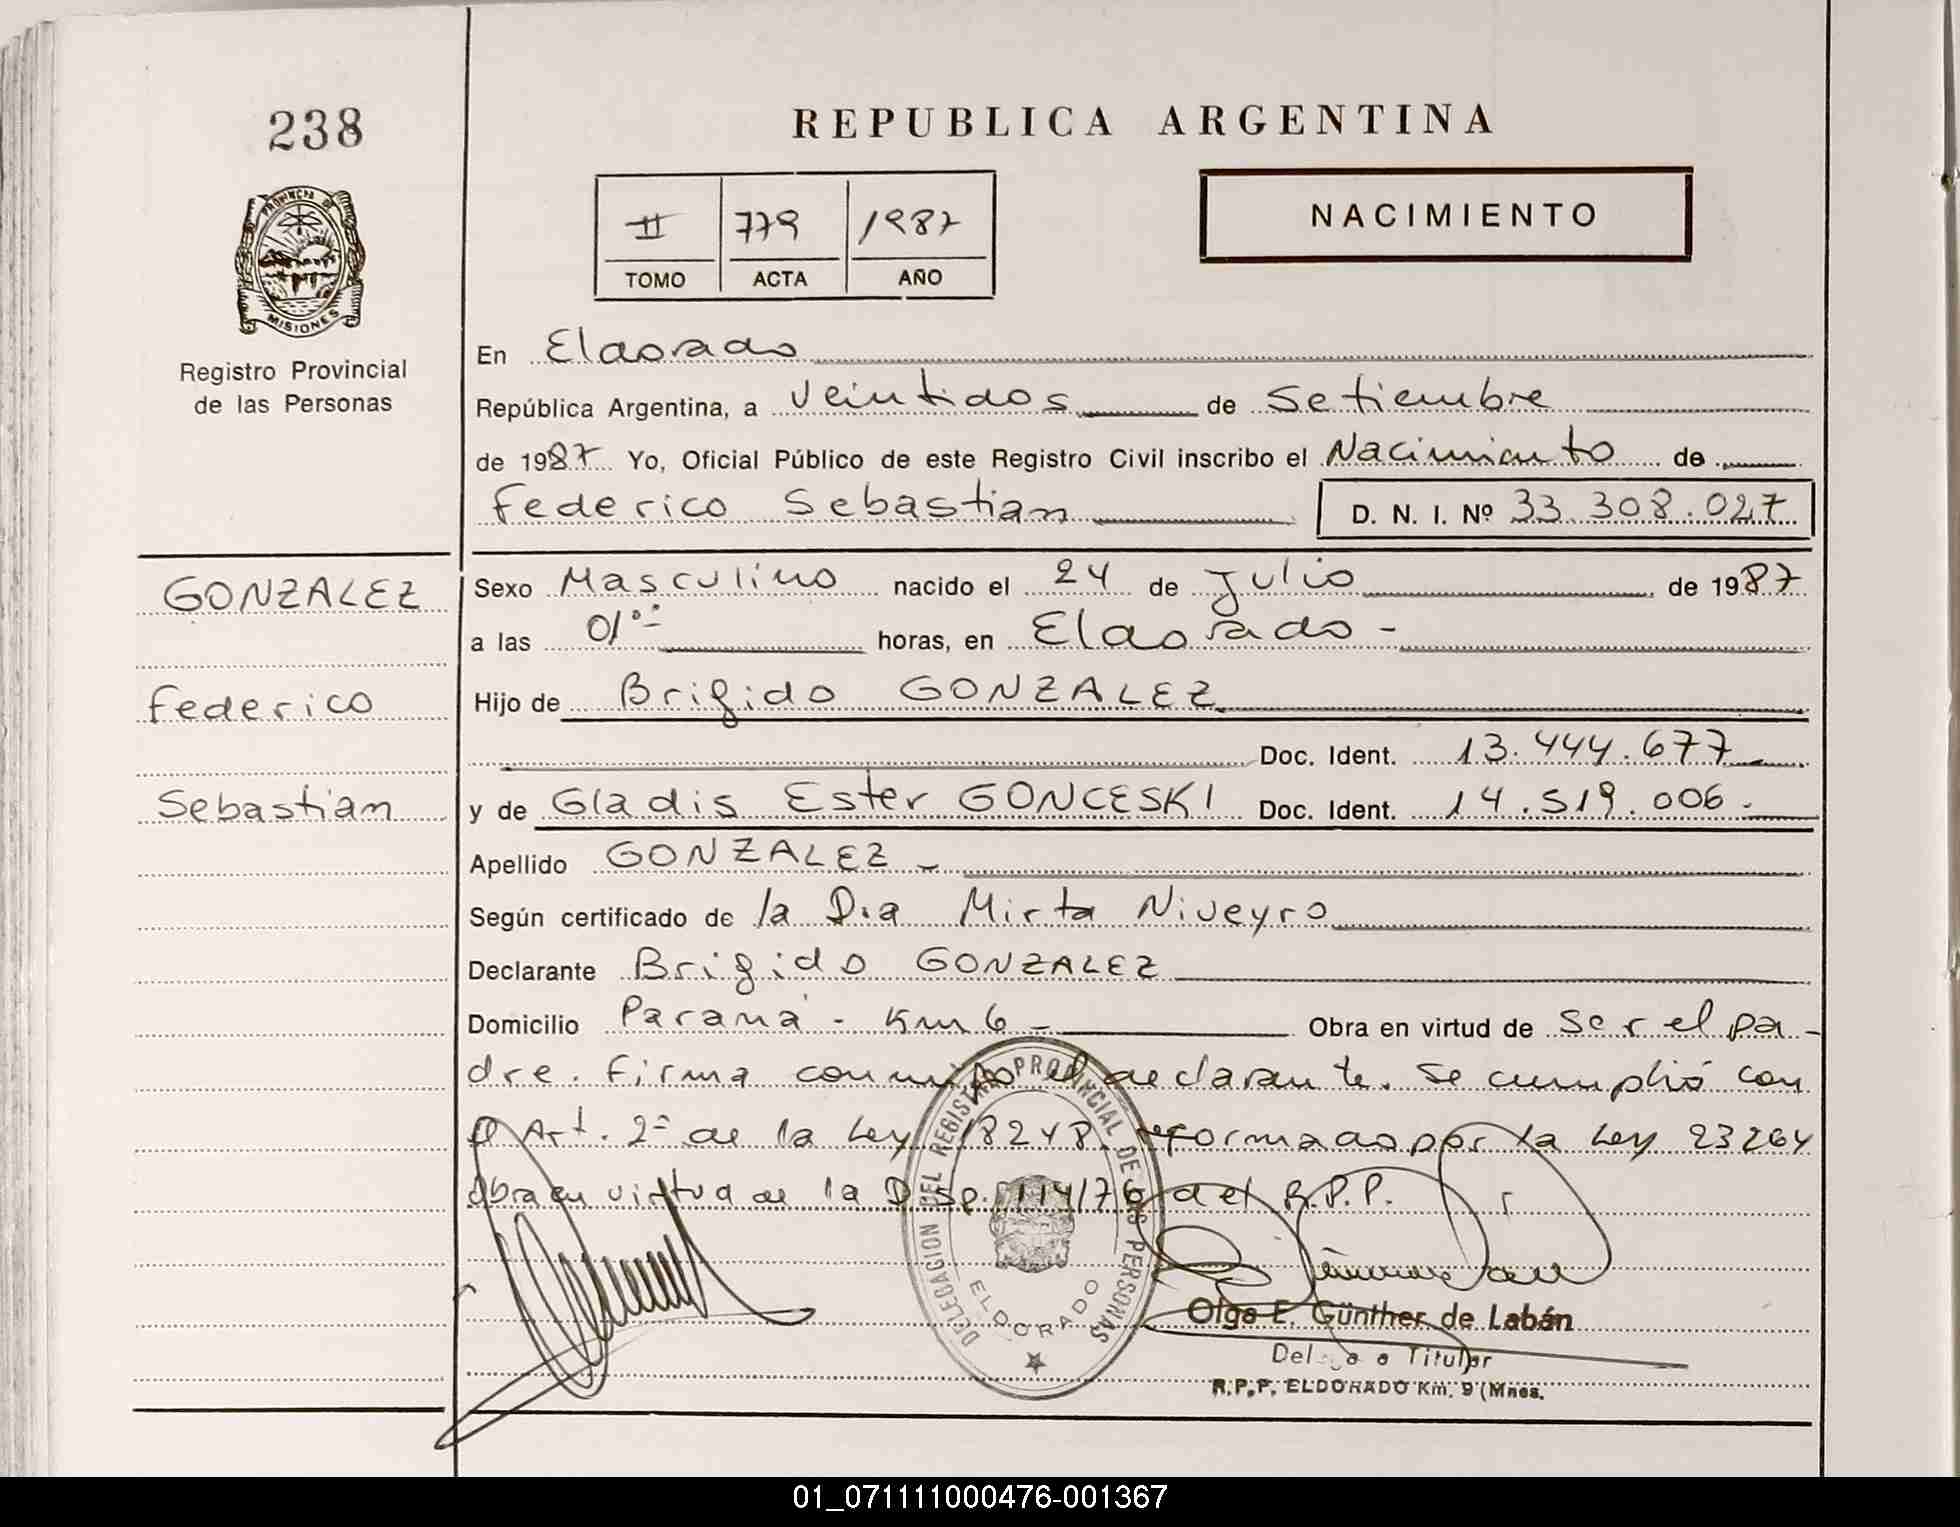 238
PROVINCIA DE
MISIONES
Registro Provincial
de las Personas
GONZALEZ
Federico
Sebastian
REPUBLICA ARGENTINA
II 779 1987
TOMO ACTA AÑO
NACIMIENTO
En Eldorado
República Argentina, a Veintidos de Setiembre
de 1987 Yo, Oficial Público de este Registro Civil inscribo el Nacimiento de
Federico Sebastian D. N. I. Nº 33.308.027
Sexo Masculino nacido el 24 de Julio de 1987
a las 01°° horas, en Eldorado -
Hijo de Brigido GONZALEZ
Doc. Ident. 13.444.677
y de Gladis Ester GONCESKI Doc. Ident. 14.519.006.
Apellido GONZALEZ -
Según certificado de la Dra Mirta Niveyro
Declarante Brigido GONZALEZ
Domicilio Paraná - Km 6 - Obra en virtud de Ser el pa-
dre. Firma conmigo el declarante. Se cumplió con
el Art. 2º de la Ley 18248 reformado por la Ley 23264
Obra en virtud de la Disp. 114/76 del R.P.P.
DELEGACION DEL REGISTRO PROVINCIAL DE LAS PERSONAS
ELDORADO
Olga E. Günther de Labán
Titular
R.P.P. ELDORADO Km. 9 (Mnes.
01_071111000476-001367